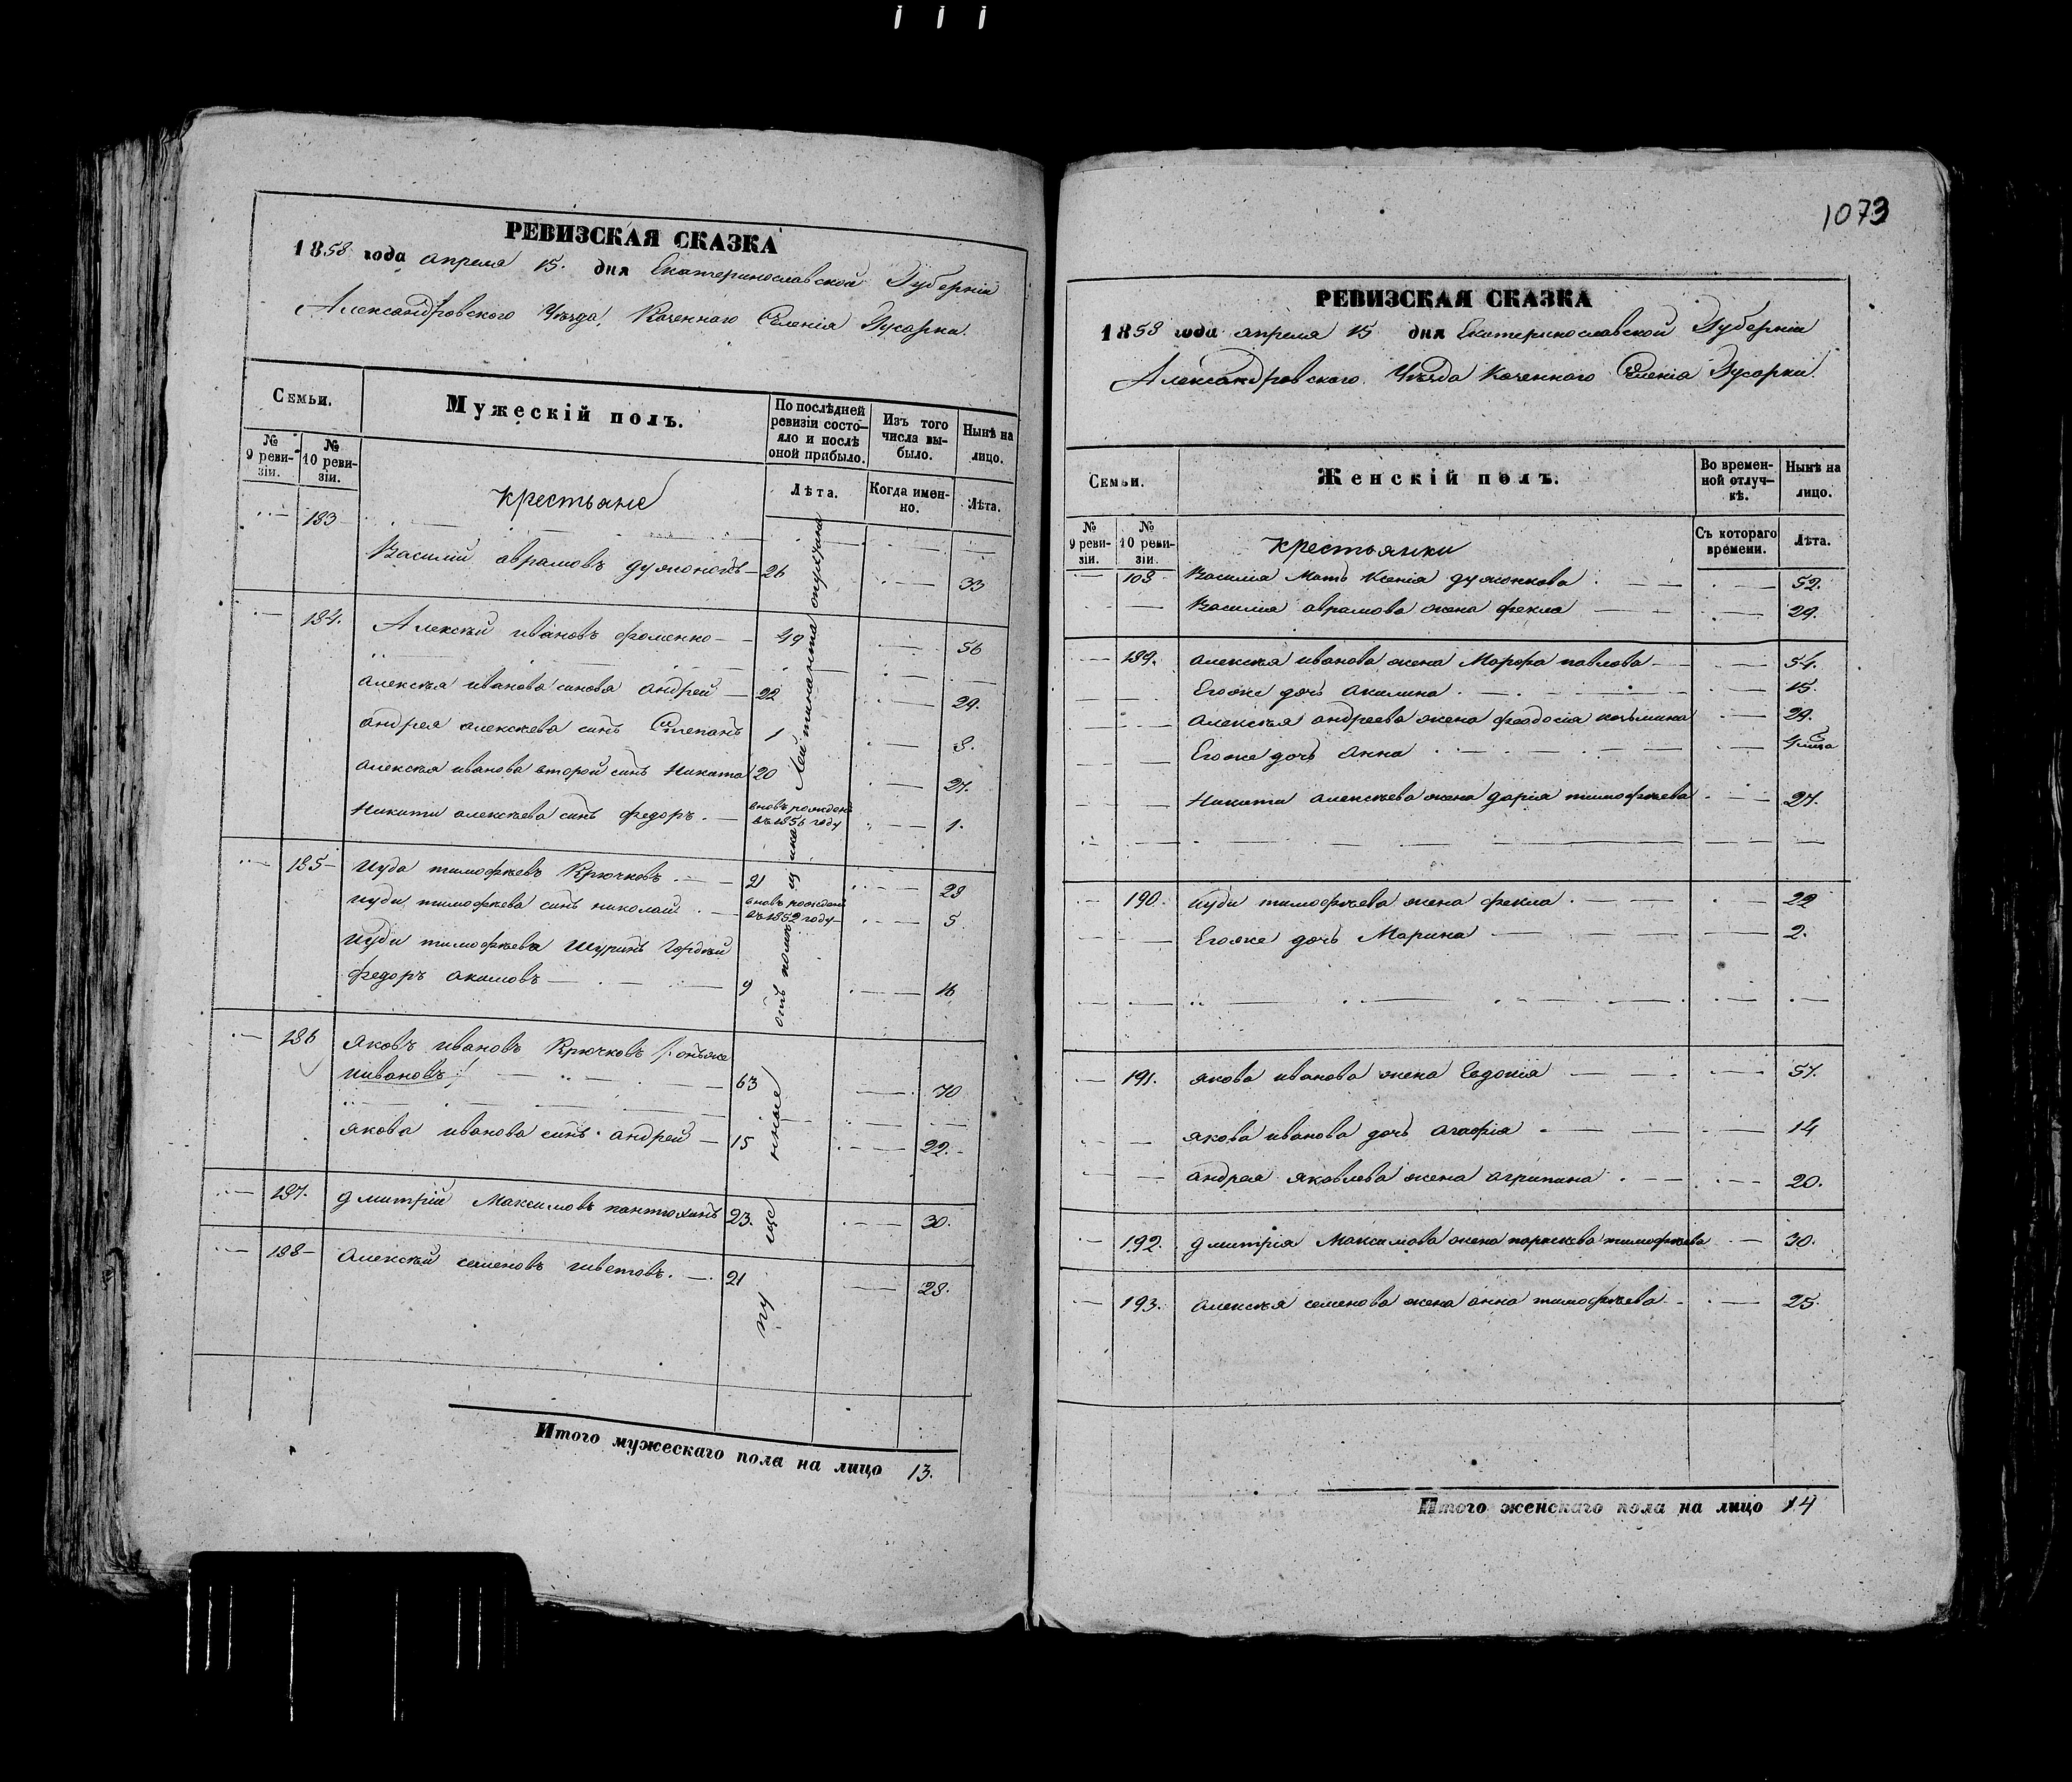 РЕВИЗСКАЯ СКАЗКА
1858 года апреля 15. дня Екатеринославской Губерніи
Александровского Уѣзда, Казеннаго Селенія Гусарки.
Семьи.
Мужескій полъ.
По послѣдней ревизіи состояло и послѣ оной прибыло.
Изъ того числа выбыло.
Нынѣ на лицо.
№ 9 ревизіи.
№ 10 ревизіи.
Лѣта.
Когда именно.
Лѣта.
Крестьяне
183
Василий аврамовъ 26 33
184. Алексѣй ивановъ фоменко 49 56
алексѣя иванова синовя андрей 22 29.
андрея алексѣева синъ Степанъ 1 8.
алексѣя иванова второй синъ Никита 20 27.
Никити алексѣева синъ федоръ. вновь рожденъ въ 1856 году 1.
185 Иуда тимофѣевъ Крючковъ 21 28
иуди тимофѣева синъ николай вновь рожденъ въ 1852 году 5
иуди тимофѣева шуринъ
федоръ акимовъ 9 16
186 Яковъ ивановъ Крючковъ /: онъже
63 70
якова иванова синъ андрей 15 22.
187. дмитрій Максимовъ пантюхинъ 23. 30.
188 алексѣй семеновъ 21 28.
Итого мужескаго пола на лицо 13.
1073
РЕВИЗСКАЯ СКАЗКА
1858 года апреля 15 дня Екатеринославской Губерніи
Александровского Уѣзда Казенного Селенія Гусарки.
Семьи.
Женскій полъ.
Во временной отлучкѣ.
Нынѣ на лицо.
№ 9 ревизіи.
№ 10 ревизіи.
Съ котораго времени.
Лѣта.
Крестьянки
Василія Мать Ксенія 52.
Василия аврамова жена фекла 29.
189. алексѣя иванова жена Марфа павлова 54.
Егоже дочь акилина 15.
алексѣя андреева жена феодосия козьмина 29.
Егоже дочь Анна
Никити алексѣева жена дария тимофѣева 27.
190. иуди тимофѣева жена фекла 22
Егоже дочь Марина 2.
191. якова иванова жена Евдокія 57.
якова иванова дочь агафія 14
андрея яковлева жена агрипина 20.
192. дмитрія Максимова жена параскѣва тимофѣева 30.
193. алексѣя семенова жена анна тимофѣева 25.
Итого женскаго пола на лицо 14